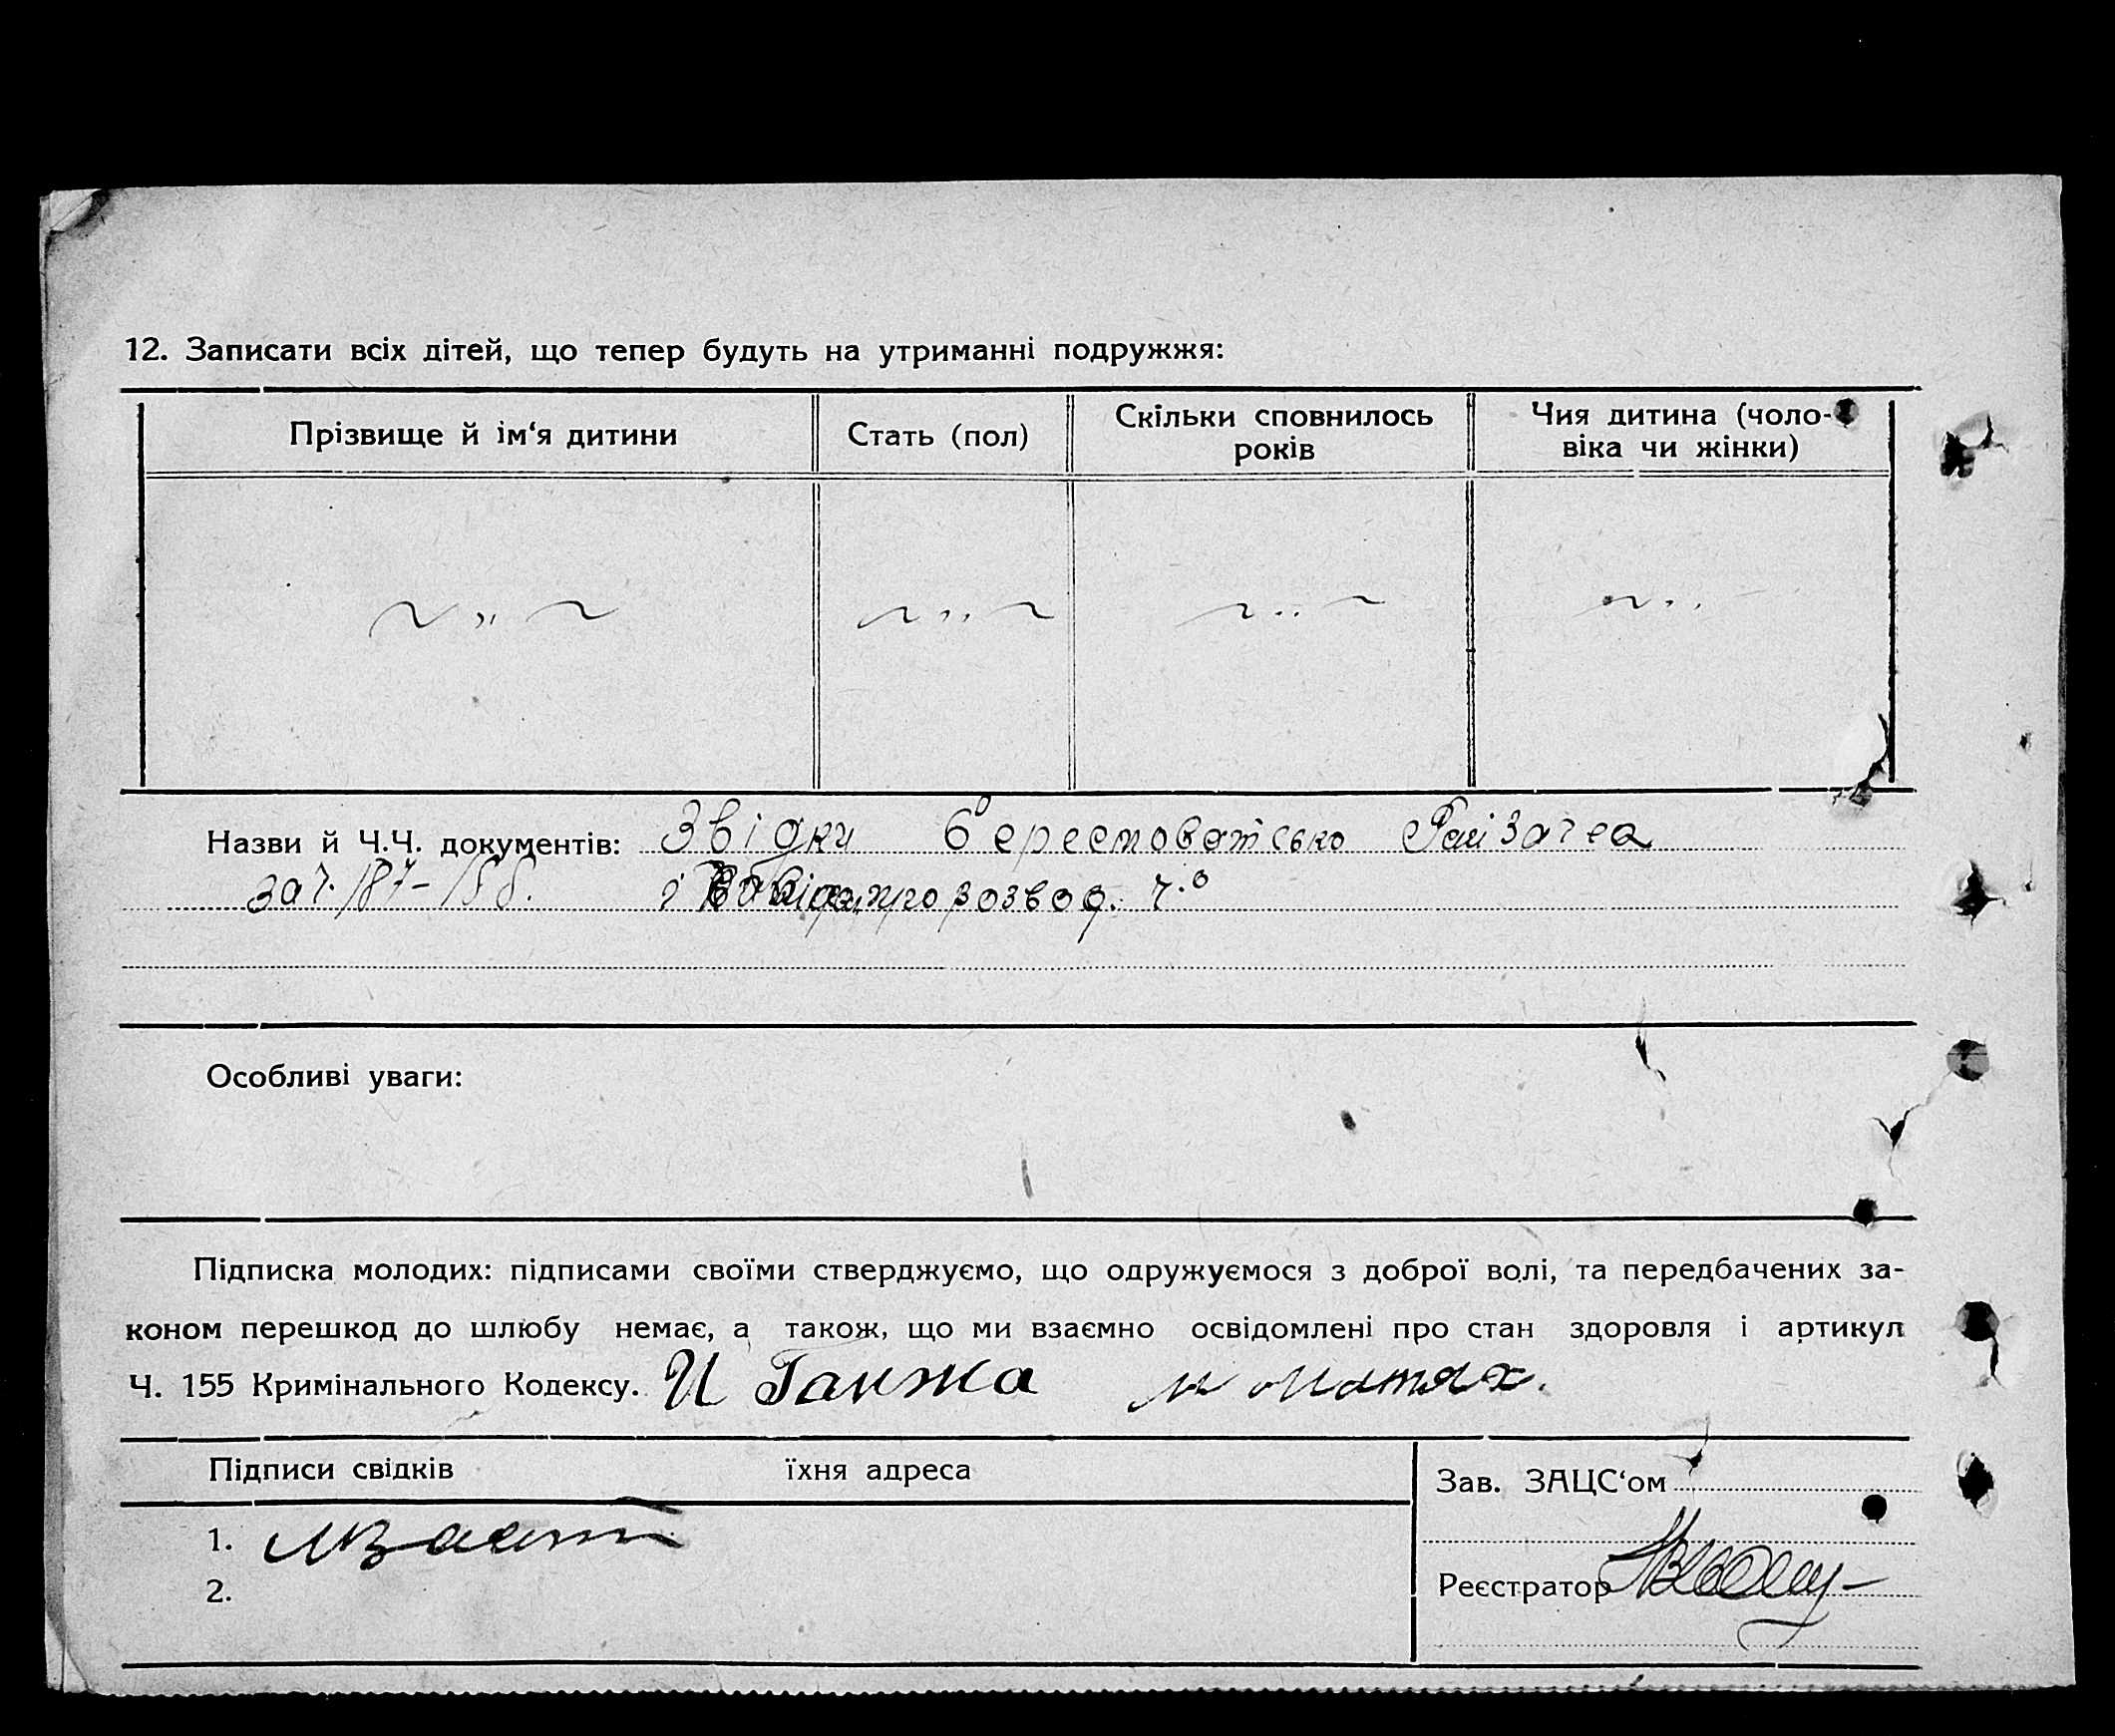 12. Записати всіх дітей, що тепер будуть на утриманні подружжя:
Прізвище й ім‘я дитини
Стать (пол)
Скільки сповнилось
років
Чия дитина (чоло-
віка чи жінки)
Назви й Ч.Ч. документів: Звідки
за ч. 187- і про розвод.
Особливі уваги:
Підписка молодих: підписами своїми стверджуємо, що одружуємося з доброї волі, та передбачених за-
коном перешкод до шлюбу немає, а також, що ми взаємно освідомлені про стан здоровля і артикул
Ч. 155 Кримінального Кодексу. И Ганжа
Підписи свідків їхня адреса
1.
2.
Зав. ЗАЦС‘ом
Реєстратор